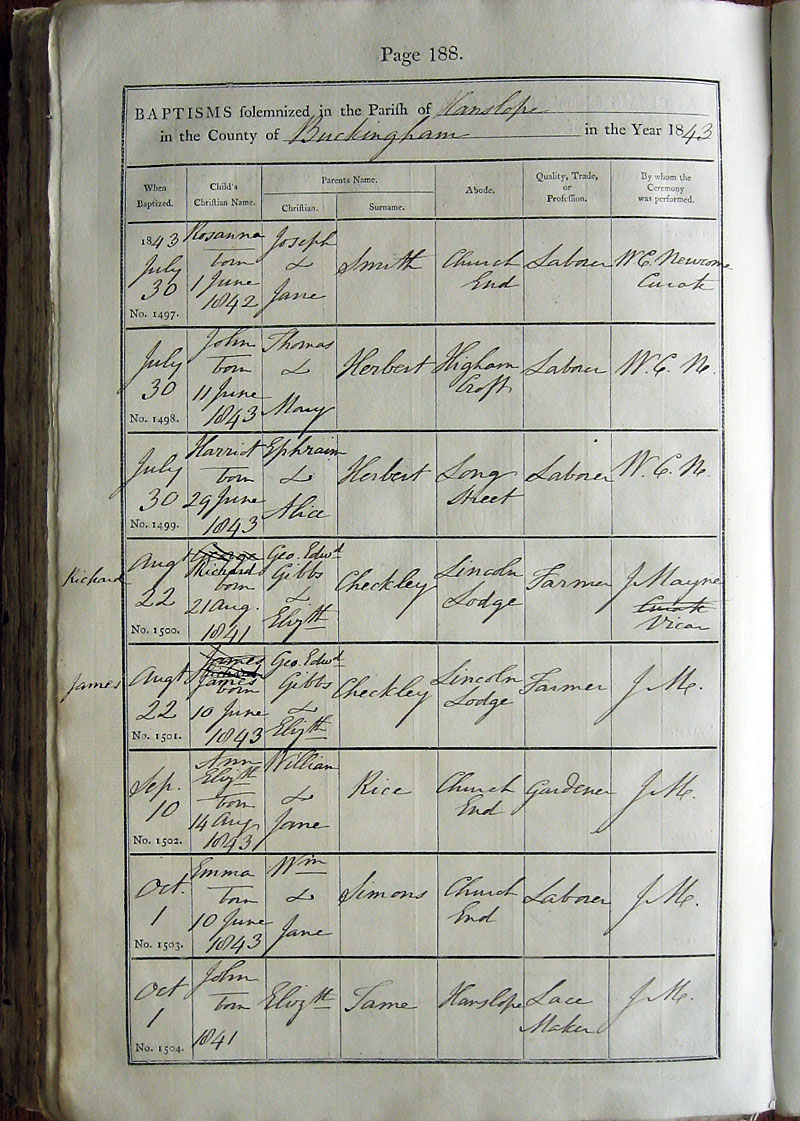 Page 188.
BAPTISMS solemnized in the Parish of Hanslope
in the County of Buckingham in the Year 1843
When Baptized. Child's Christian Name. Parents Name. Christian. Surname. Abode. Quality, Trade, or Profession. By whom the Ceremony was performed.
1843 July 30 No. 1497. Rosanna born 1 June 1842 Joseph & Jane Smith Church End Laborer W. C. Newcome Curate
July 30 No. 1498. John born 11 June 1843 Thomas & Mary Herbert Higham Croft Laborer W. C. N.
July 30 No. 1499. Harriot born 29 June 1843 Ephraim & Alice Herbert Long Street Laborer W. C. N.
Richard Augt 22 No. 1500. George Richard born 21 Aug. 1841 Geo. Edwd Gibbs & Elizth Checkley Lincoln Lodge Farmer J Mayne Curate Vicar
James Augt 22 No. 1501. James Richard James born 10 June 1843 Geo. Edwd Gibbs & Elizth Checkley Lincoln Lodge Farmer J M.
Sep. 10 No. 1502. Ann Elizth born 14 Aug. 1843 William & Jane Rice Church End Gardener J M.
Oct. 1 No. 1503. Emma born 10 June 1843 Wm & Jane Simons Church End Laborer J M.
Oct 1 No. 1504. John born 1841 Elizth Tame Hanslope Lace Maker J M.